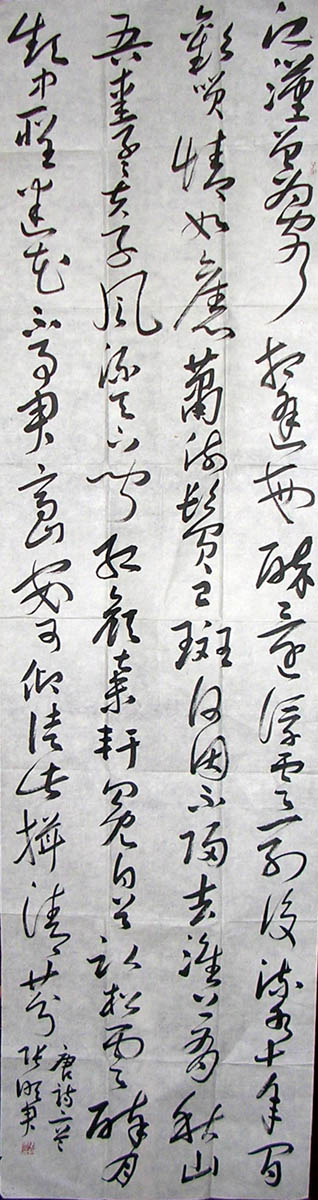 江漢曾為客相逢每醉還浮雲一別後流水十年間
歡咲情如舊蕭疏鬢已斑何因不歸去淮上有秋山
吾愛孟夫子風流天下聞紅顏棄軒冕白首臥松雲醉月
頻中聖迷花不事君高山安可仰徒此揖清芬
唐詩二首
張